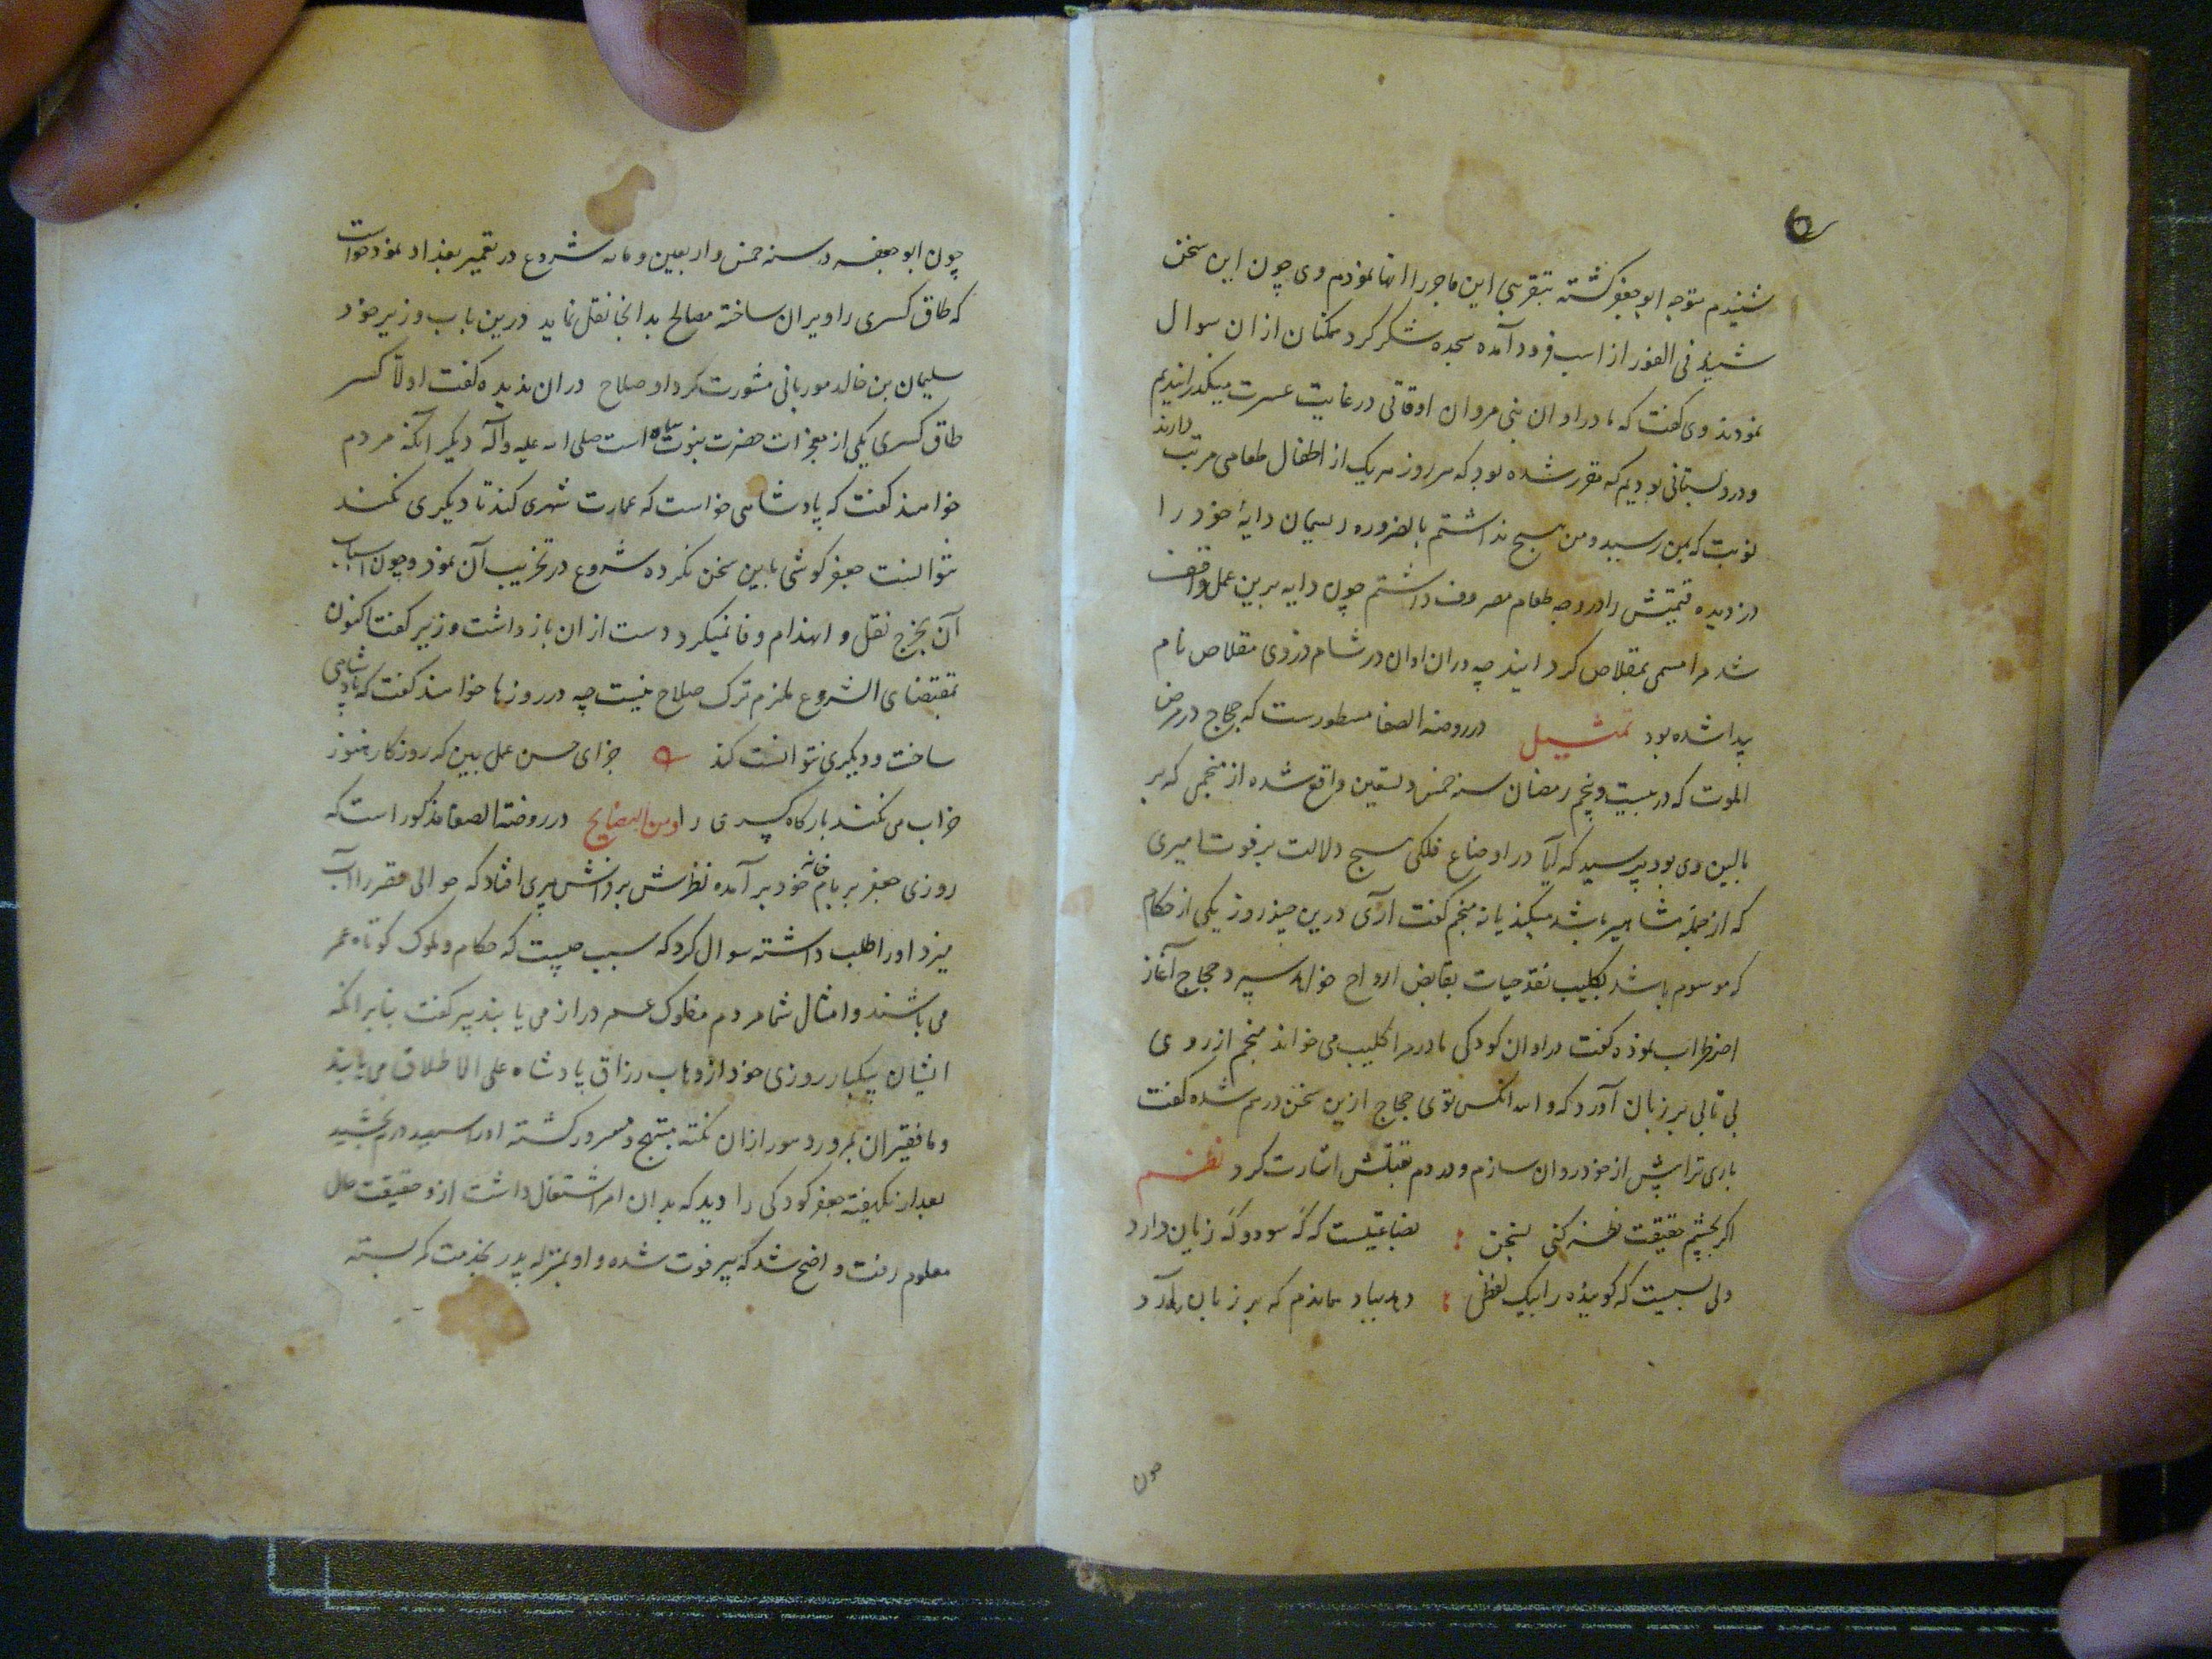 شنیدم متوجه ابو جعفر گشته بتقریبی این ماجرا انها نمودم وی چون این سخن
شنید فی الفور از اسب فرود آمده سجده شکر کرد ممکنان ازان سوال
نمودند وی گفت که ما در اوان بنی مروان اوقاتی در غایت عسرت میگذرانیدیم
و در دبستانی بودیم که مقرر شده بود که هر روز هر یک از اطفال طعامی مرتب دارند
نوبت که بمن رسید و من هیچ نداشتم بالضروره ریسمان دایهٔ خود را
دزدیده قیمتش را در وجه طعام مصروف داشتم چون دایه برین عمل واقف
شد مرا مسمی بمقلاص کردانید چه دران اوان در شام دزدی مقلاص نام
پیدا شده بود تمثیل در روضة الصفا مسطورست که حجاج در مرض
الموت که در بیست و پنجم رمضان سنه خمس و تسعین واقع شده از منجمی که بر
بالین وی بود پرسید که آیا در اوضاع فلکی هیچ دلالت بر فوت امیری
که از جمله مشاهیر باشد میکند یا نه منجم گفت آری درین چند روز یکی از حکام
که موسوم باشد بکلیب نقد حیات بقابض ارواح خواهد سپرد حجاج آغاز
اضطراب نموده گفت در اوان کودکی مادر مرا کلیب می خواند منجم از روی
بی تابی بر زبان آورد که والله انکس توی حجاج ازین سخن درهم شده گفت
باری ترا پیش از خود روان سازم و در دم بقتلش اشارت کرد نظم
اگر بچشم حقیقت نظر کنی بسخن : بضاعتیست که که سود و که زیان دارد
ولی بسیست که گوینده را بیک لفظی : دهد بباد هماندم که بر زبان آرد
چون
چون ابو جعفر در سنه خمس و اربعین و مائه شروع در تعمیر بغداد نمود خواست
که طاق کسری را ویران ساخته مصالح بدانجا نقل نماید درین باب وزیر خود
سلیمان بن خالد موریانی مشورت کرد او صلاح دران ندیده گفت اولا کسر
طاق کسری یکی از معجزات حضرت نبوت پناه است صلی الله علیه و آله دیگر آنکه مردم
خواهند گفت که پادشاهی خواست که عمارت شهری کند تا دیگری نکند
نتوانست جعفر گوشی باین سخن نکرده شروع در تخریب آن نمود و چون اسباب
آن بخرج نقل و انهدام وفا نمیکرد دست ازان باز داشت وزیر گفت اکنون
بمقتضای الشروع ملزم ترک صلاح نیست چه در روزها خواهند گفت که پادشاهی
ساخت و دیگری نتوانست کند جزای حسن عمل بین که روزکار هنوز
خراب می نکند بارگاه کسری را ومن النصایح در روضة الصفا مذکور است که
روزی جعفر بر بام خانه خود بر آمده نظرش بر پیری افتاد که حوالی مقرر را آب
میزد او را طلب داشته سوال کرد که سبب چیست که حکام و ملوک کوتاه عمر
می باشند و امثال شما مردم مفلوک عمر دراز می یابند پیر گفت بنابر آنکه
ایشان بیکبار روزی خود از وهاب رزاق پادشاه علی الاطلاق می یابند
و ما فقیران بمرور و مور ازان نکته مبتهج و مسرور گشته او را سیصد درم بخشید
بعد از یکهفته جعفر کودکی را دید که بدان امر اشتغال داشت ازو حقیقت حال
معلوم رفت واضح شد که پیر فوت شده و او بمنزله پدر بخدمت کمر بسته